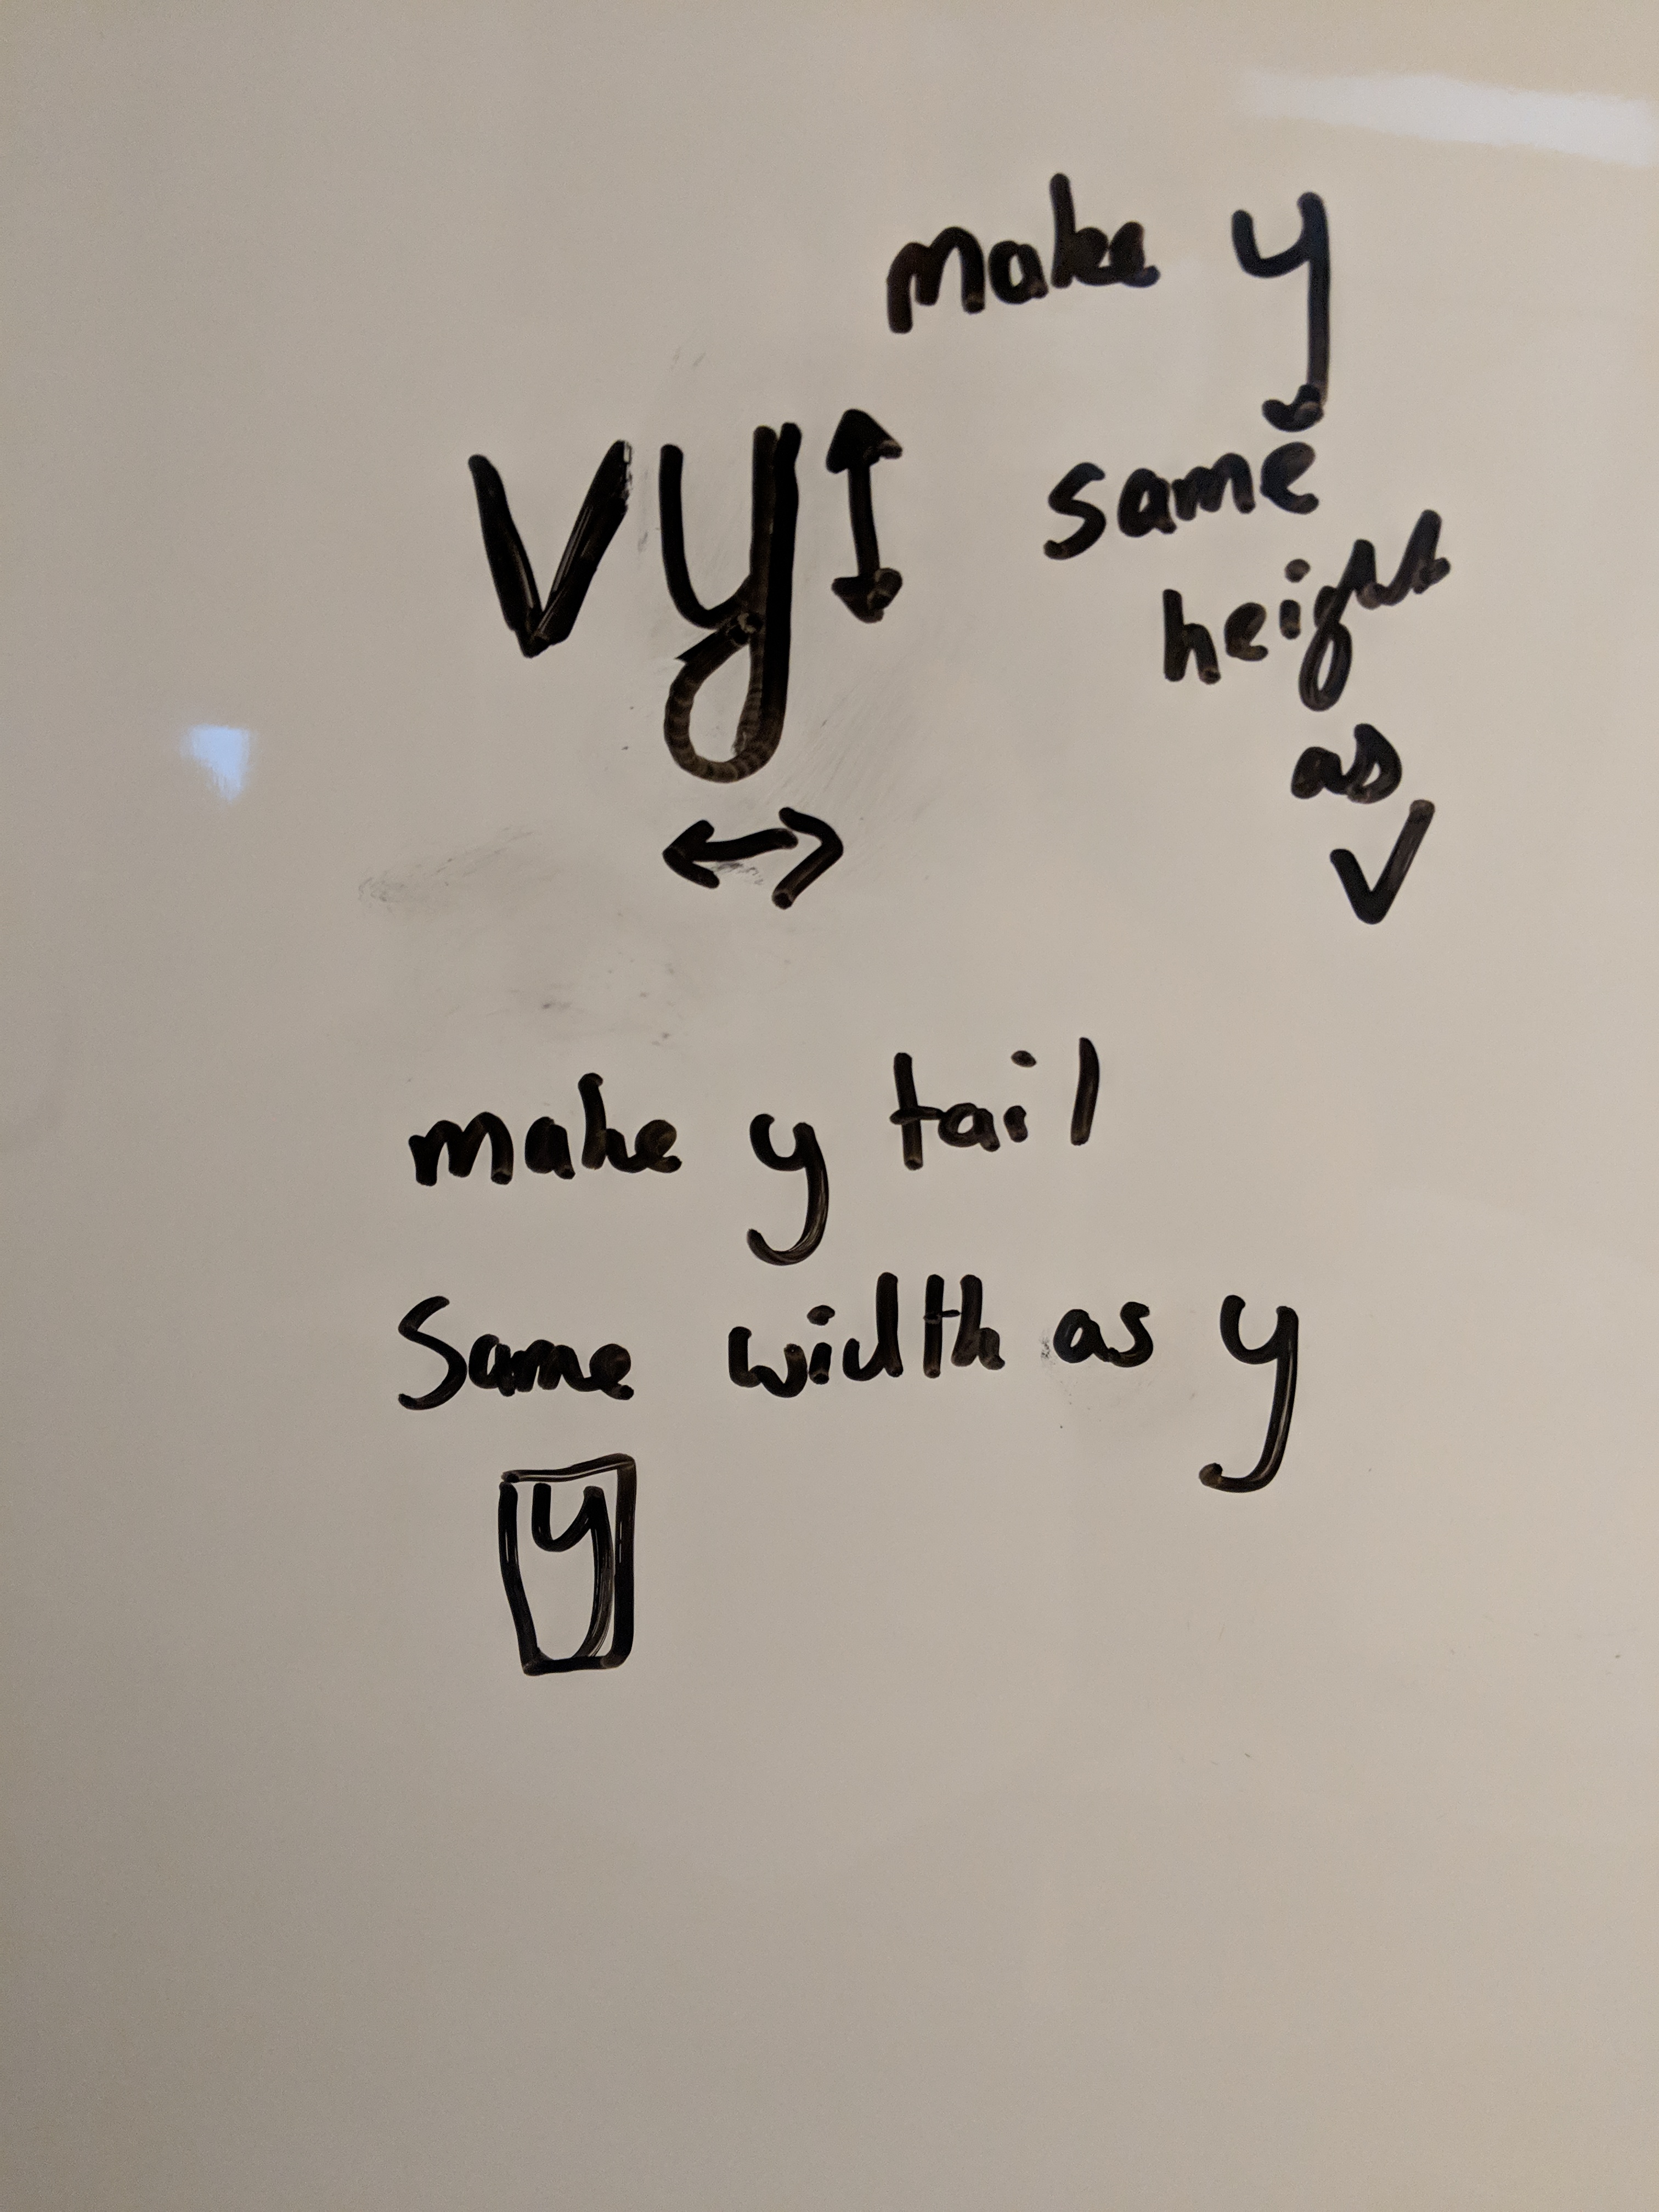 make y
vy
same
height
as
v
make y tail
Same width as y
y